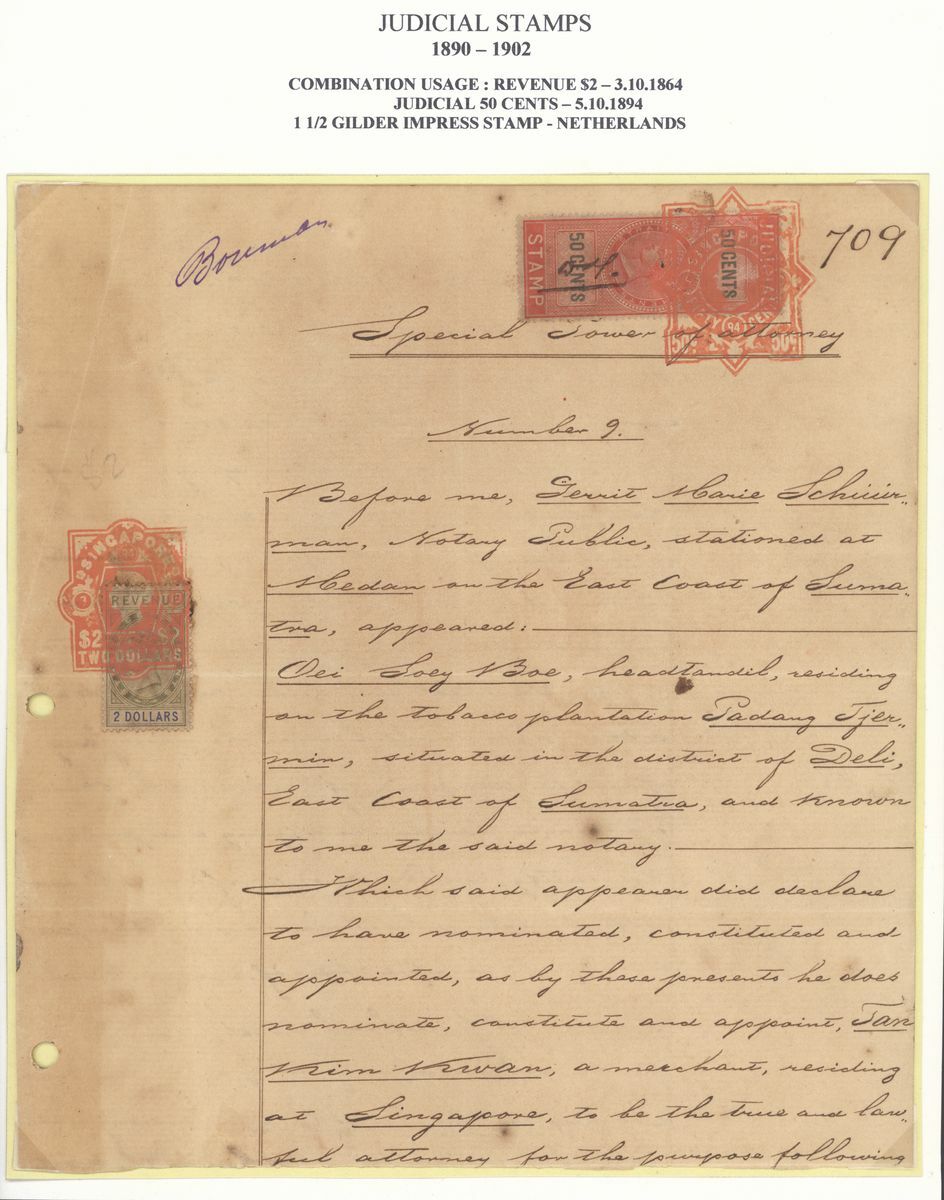 JUDICIAL STAMPS
1890 – 1902
COMBINATION USAGE : REVENUE $2 – 3.10.1864
JUDICIAL 50 CENTS – 5.10.1894
1 1/2 GILDER IMPRESS STAMP - NETHERLANDS
Bouman
709
STAMP
50 CENTS
50 CENTS
JUDICIAL
50c 94 50c
Special Power of attorney
Number 9.
$2
Before me, Gerrit Marie Schüür-
man, Notary Public, stationed at
Medan on the East Coast of Suma-
tra, appeared:
Oei Soey Boe, headtandil, residing
on the tobacco plantation Padang Tjer-
min, situated in the district of Deli,
East Coast of Sumatra, and known
to me the said notary.
Which said appearer did declare
to have nominated, constituted and
appointed, as by these presents he does
nominate, constitute and appoint, Tan
Kim Kwan, a merchant, residing
at Singapore, to be the true and law-
ful attorney for the purpose following
SINGAPORE
REVENUE
$2 $2
TWO DOLLARS
2 DOLLARS